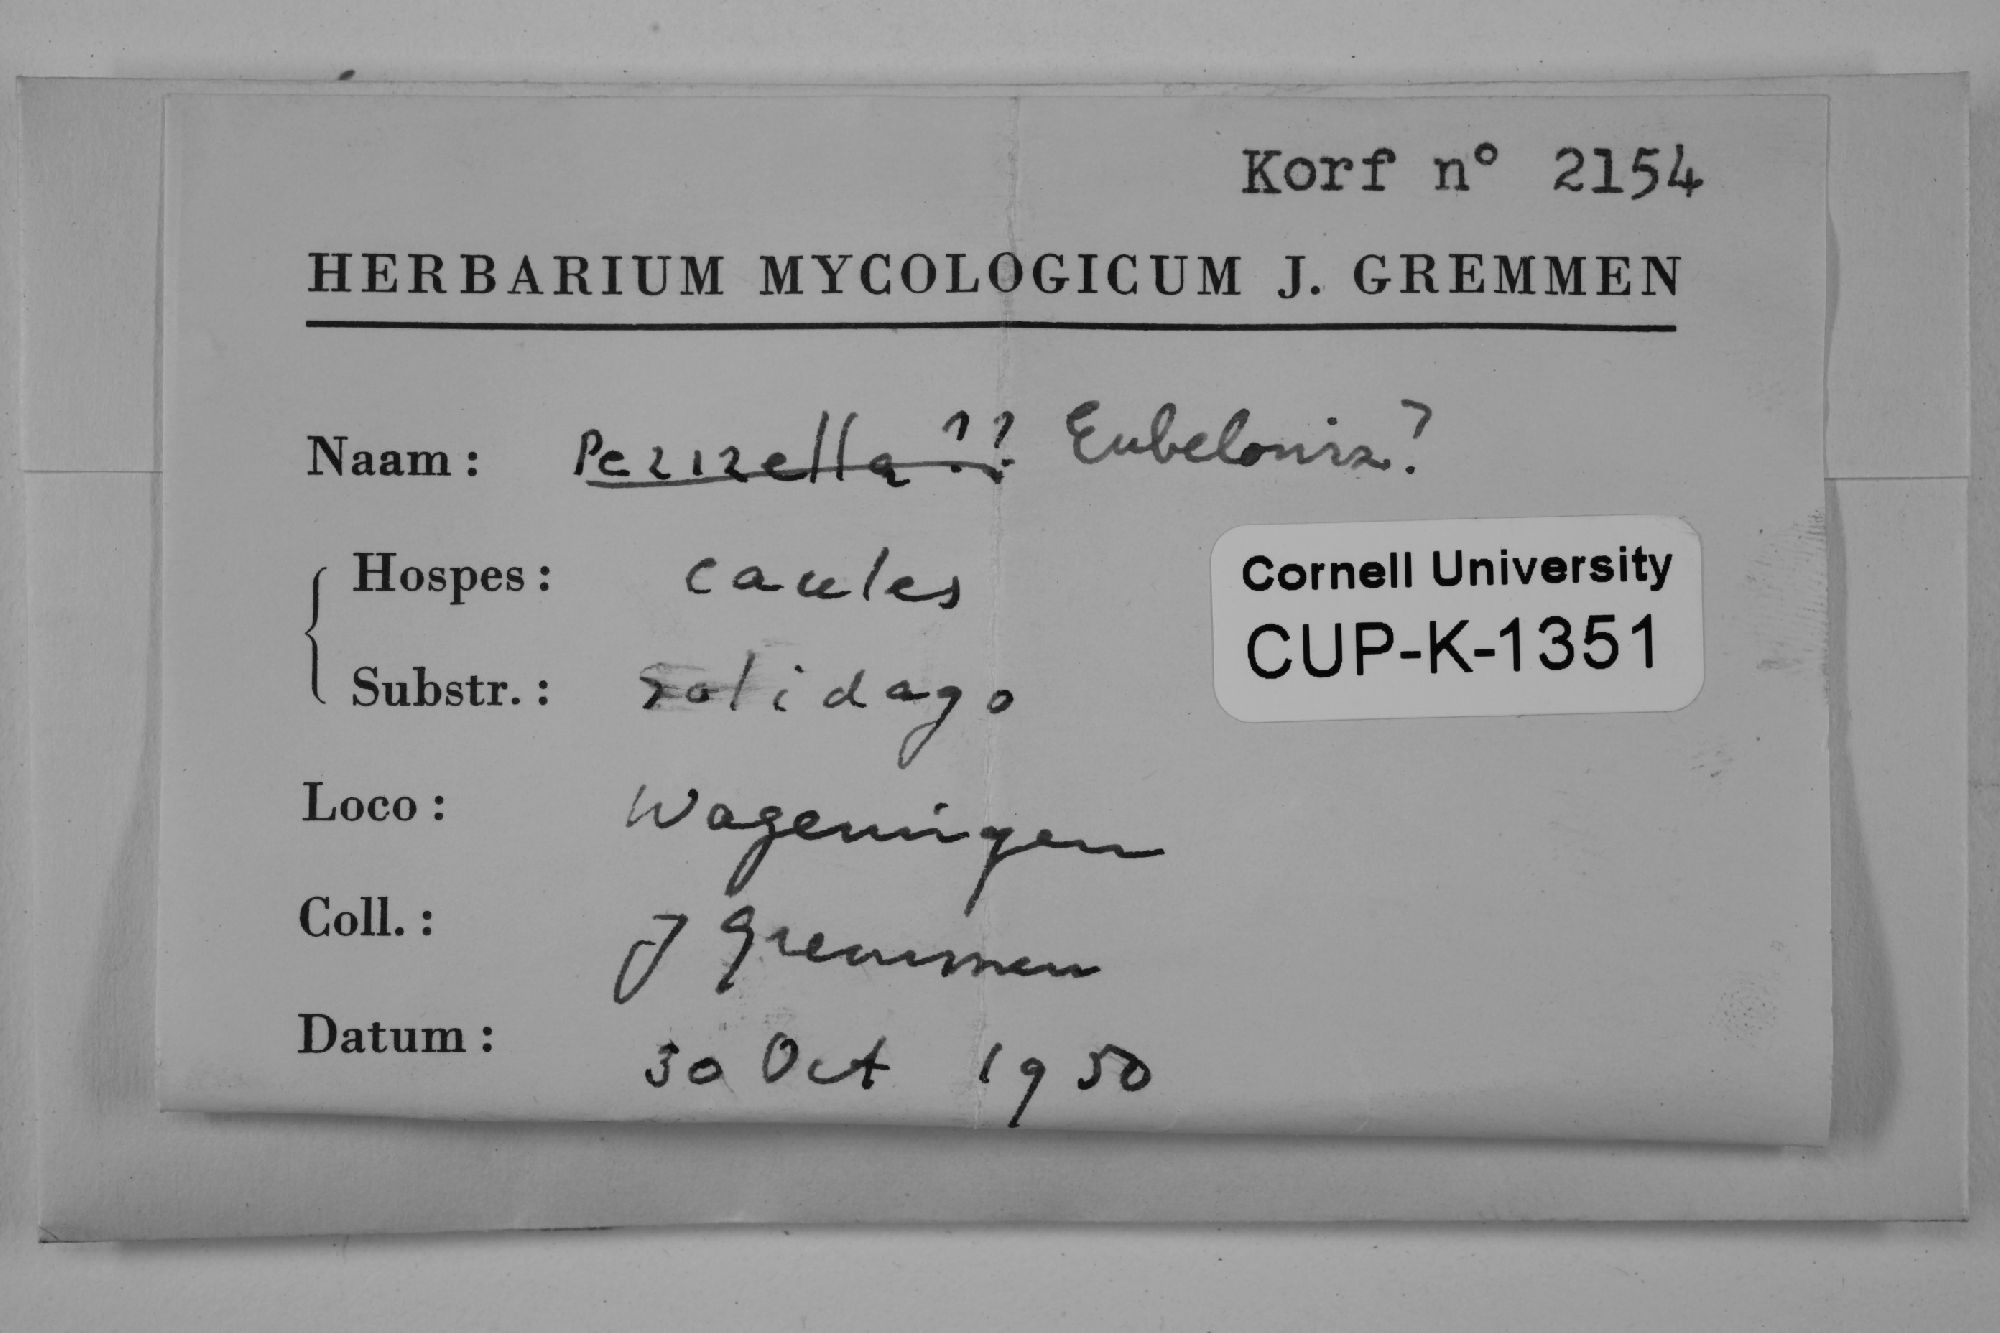 Korf nº 2154
HERBARIUM MYCOLOGICUM J. GREMMEN
Naam: Pezizella ?? Eubelonis?
Hospes: caules
Cornell University
CUP-K-1351
Substr.: Solidago
Loco: Wageningen
Coll.: J Gremmen
Datum: 30 Oct 1950